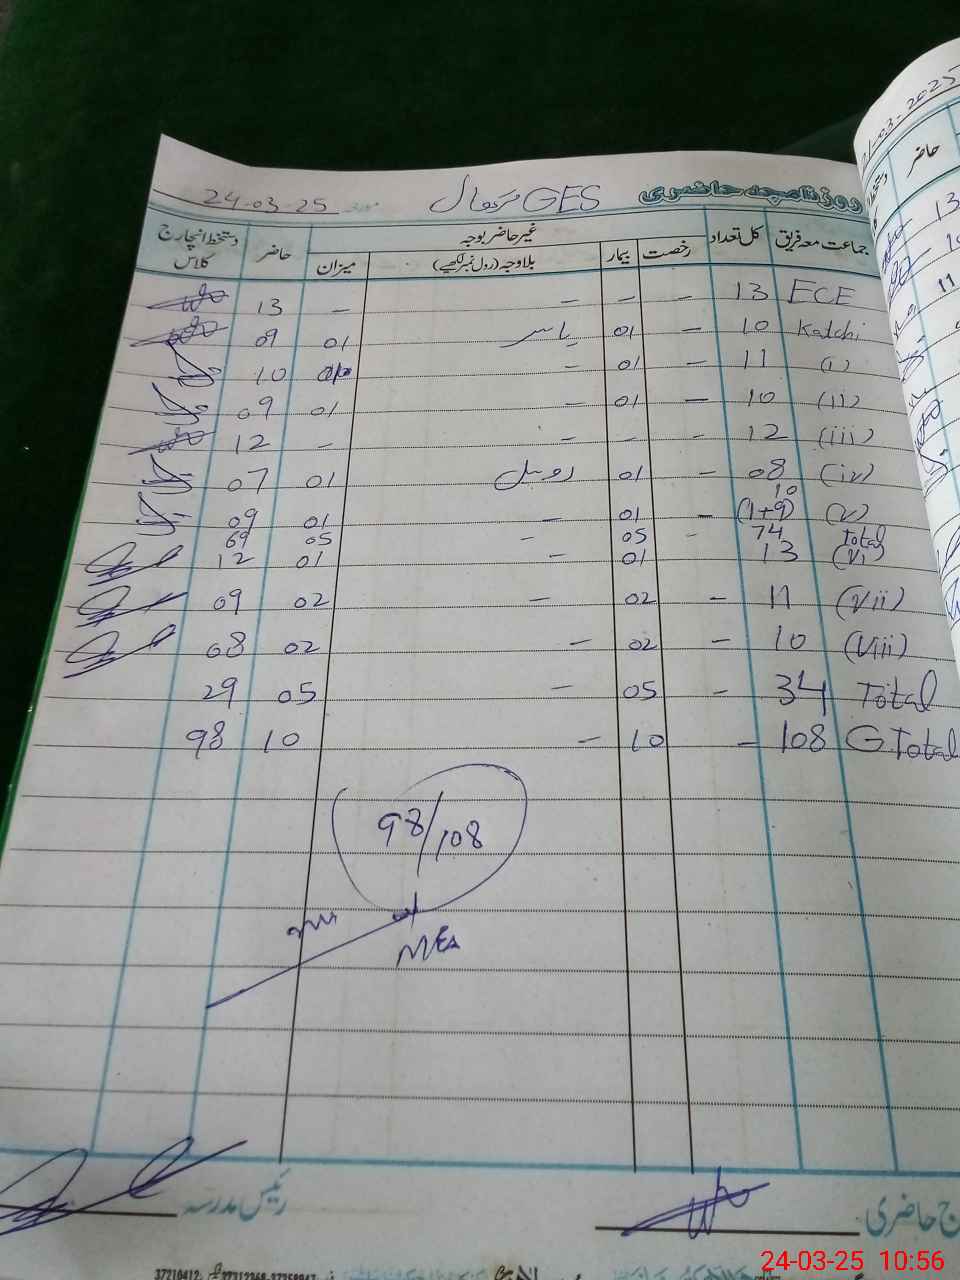 روزنامچہ حاضری GES مورخہ 24-03-25
جماعت معہ فریق کل تعداد غیر حاضر بوجہ حاضر دستخط انچارج کلاس
رخصت بیمار بلاوجہ (رول نمبر لکھیے) میزان
ECE 13 - - - - 13
Katchi 10 - 01 یاسر 01 09
(i) 11 - 01 - 10
(ii) 10 - 01 - 01 09
(iii) 12 - - - - 12
(iv) 08 - 01 01 07
10
(v) (1+9) - 01 - 01 09
Total 74 - 05 - 05 69
(vi) 13 01 - 01 12
(vii) 11 - 02 - 02 09
(viii) 10 - 02 - 02 08
Total 34 - 05 - 05 29
G.Total 108 - 10 - 10 98
98/108
MEA
ج حاضری رئیس مدرسہ
24-03-25 10:56
37210412
2025
حاضر
13
11